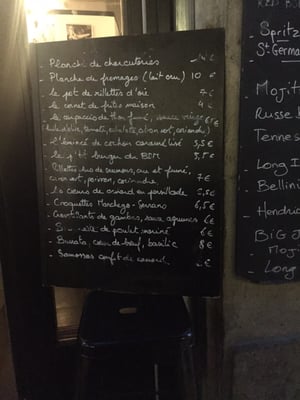 - Planche de charcuteries
- Planche de fromages (lait cru) 10 €
- le pot de rillettes d'oie 7 €
- le cornet de frites maison 4 €
- le carpaccio de thon fumé, sauce vierge 6 €
- L'émincé de cochon caramélisé 5,5 €
- le p'tit burger du BDM 5,5 €
- Rillettes duo de saumons, cru et fumé,
poivron, coriandre 7 €
- 10 cœurs de canard en persillade 5,5 €
- Croquettes Manchego - Serrano 6,5 €
- Croustillants de gambas, sauce agrumes 6 €
de poulet mariné 6 €
- Burrata, cœur de bœuf, basilic 8 €
- Samossas confit de canard €
Spritz
St Germa
Mojit
Russe
Tennes
Long I
Bellin
- Hendric
BiG J
Moji
- Long